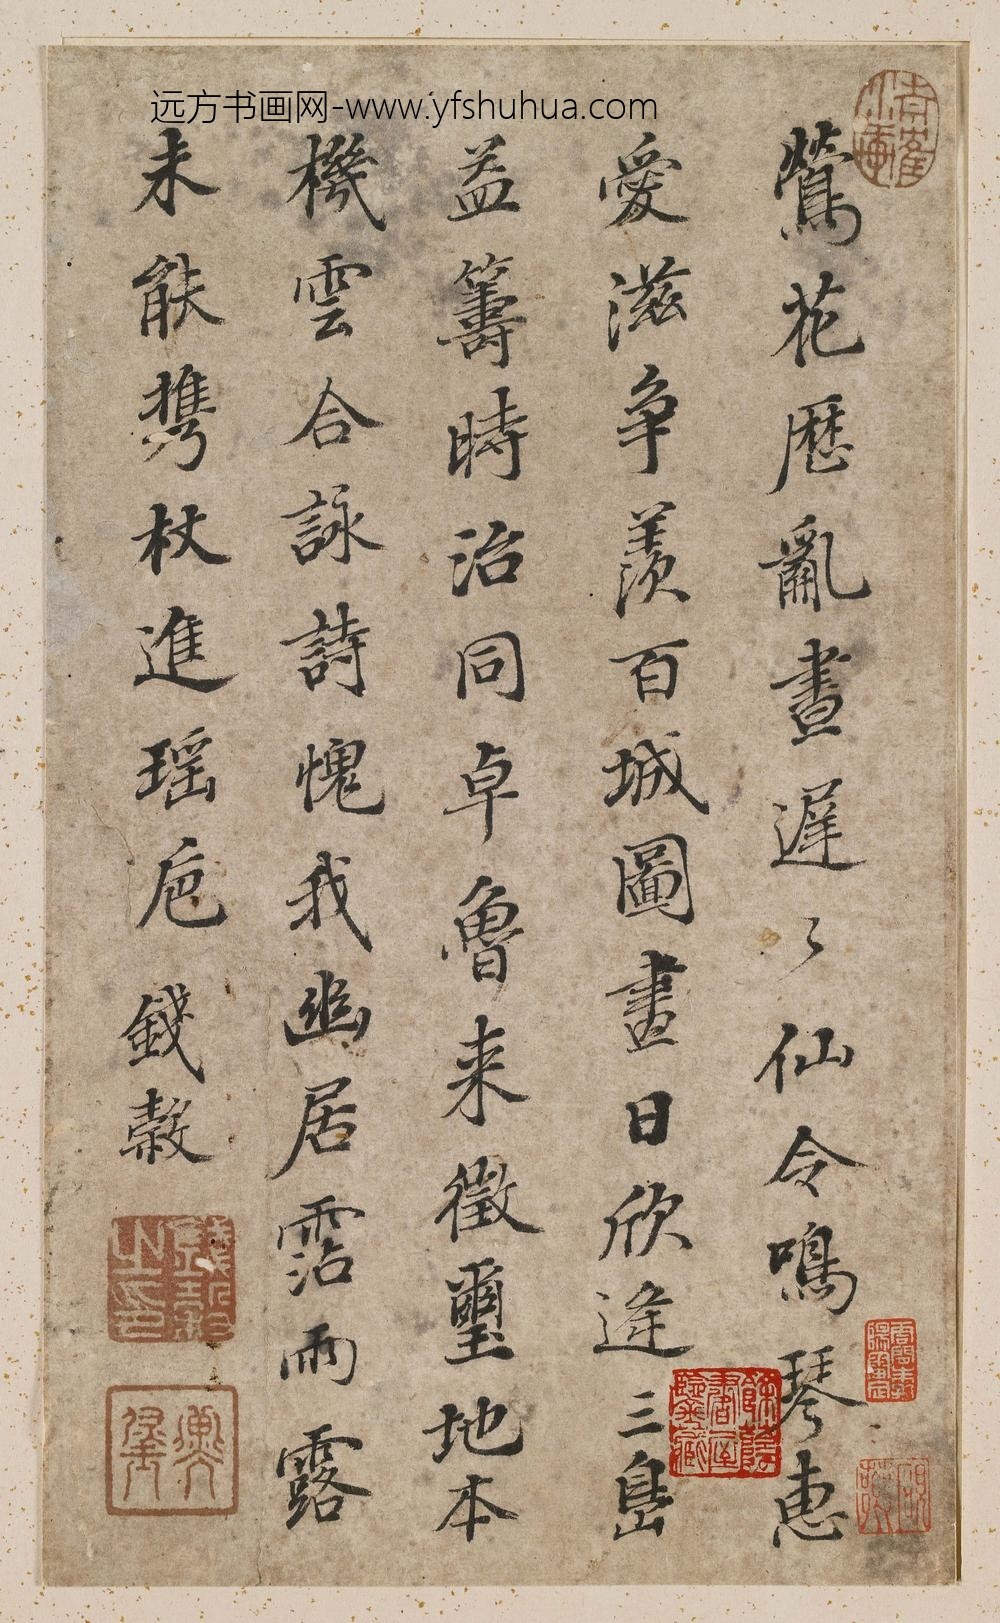 远方书画网-www.yfshuhua.com
鶯花歷亂晝遲々仙令鳴琴惠
愛滋争羨百城圖畫日欣逢三島
益籌時治同卓魯来徵璽地本
機雲合詠詩愧我幽居霑雨露
未能携杖進瑶卮 錢榖